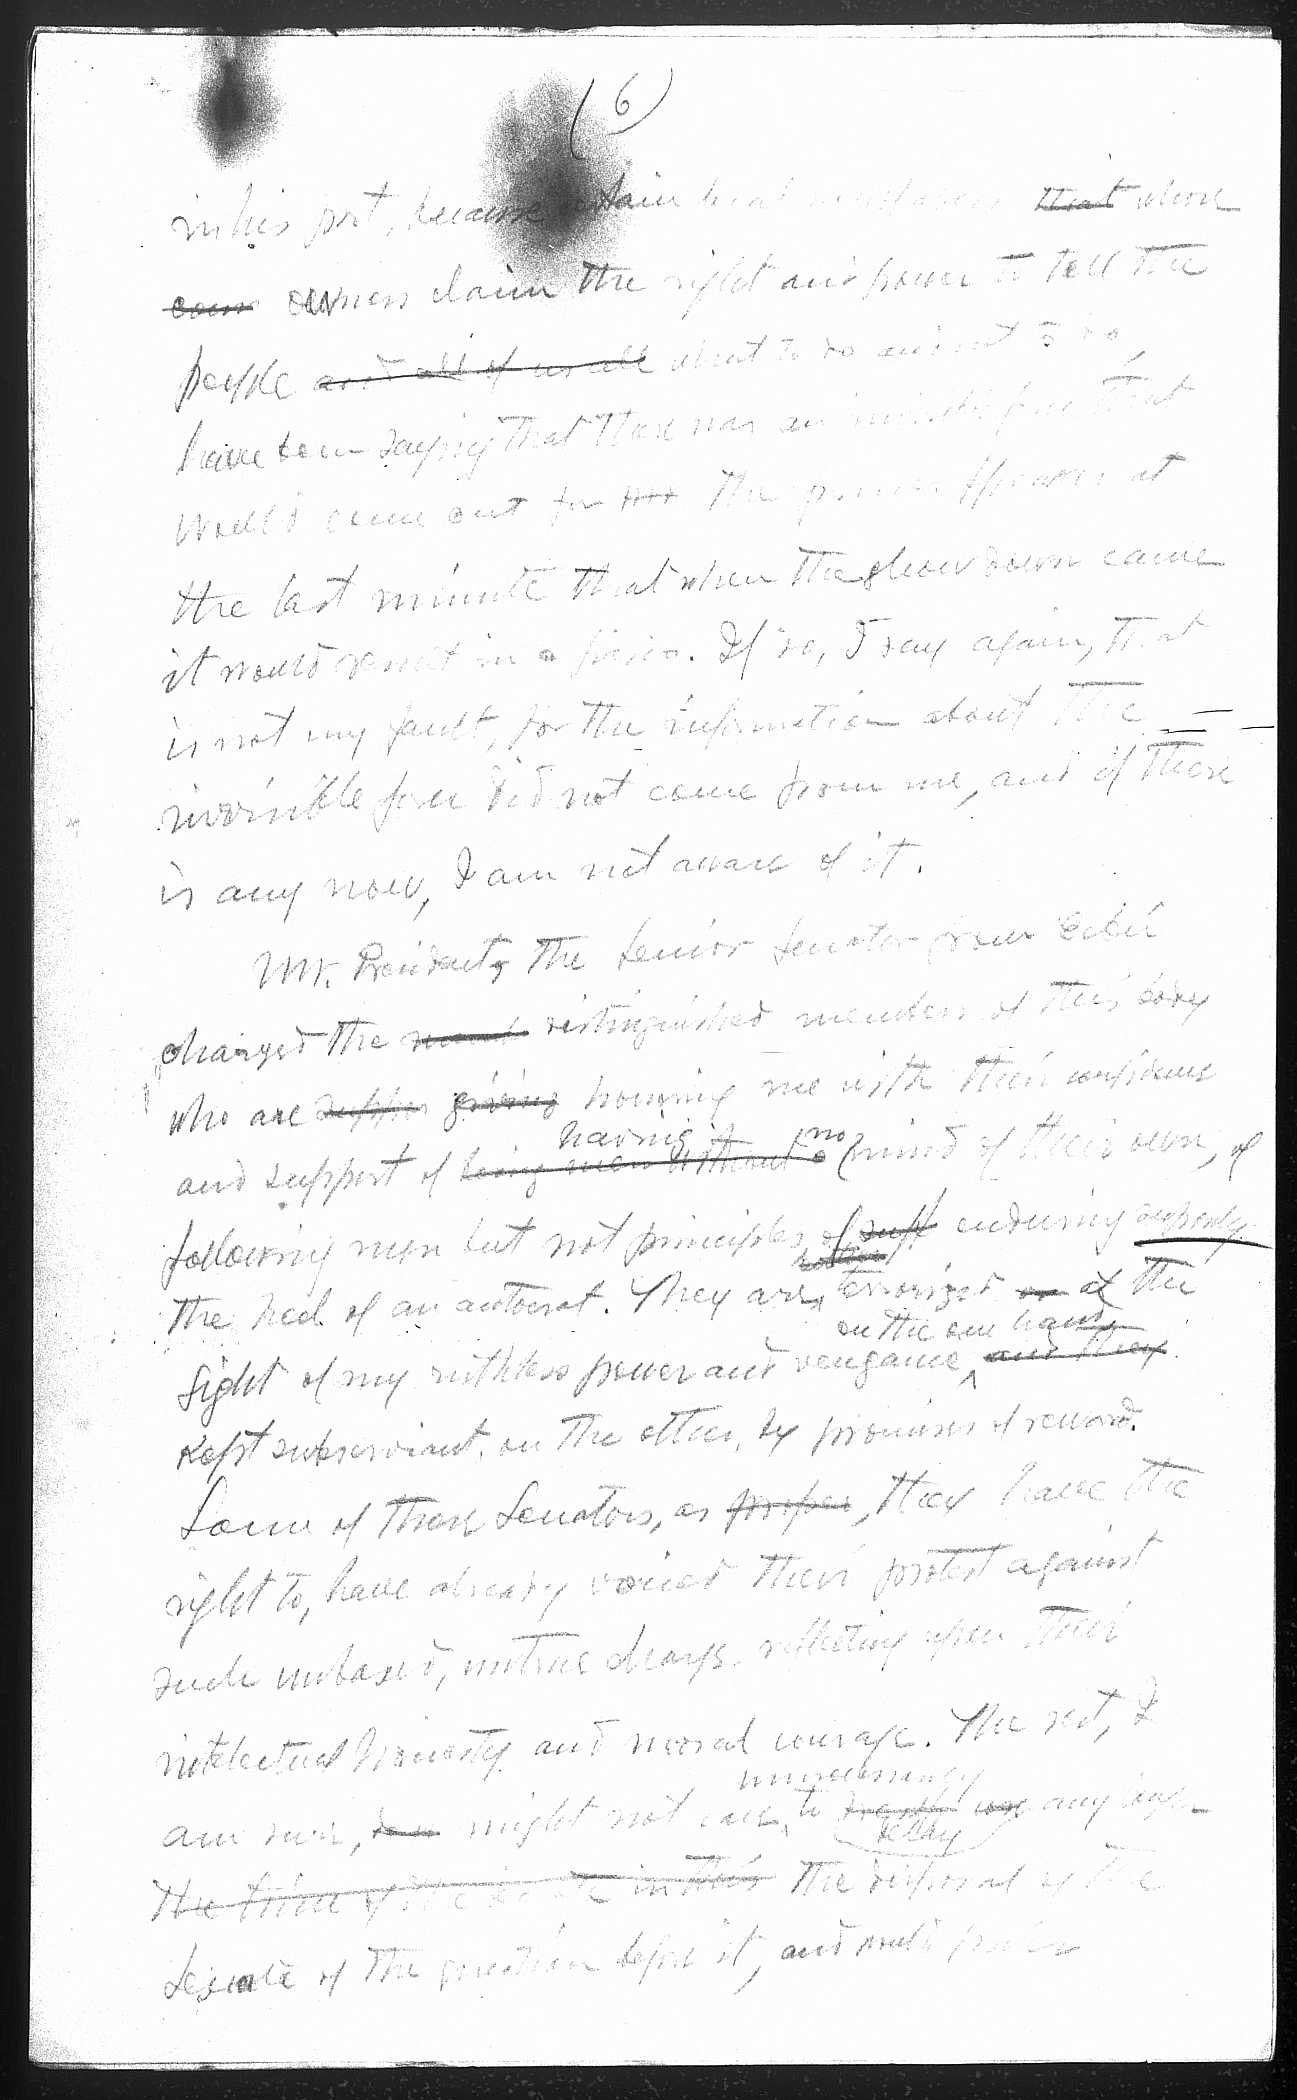 (6)
in his post, because certain local newspapers ~~that~~ whose
~~cour~~ owners claim the right and power to tell the
people ~~and all of us all~~ what to do and not to do,
have been saying that there was an invisible force that
would come out for the at
the last minute that when the showdown came
it would result in a fiasco. If so, I say again, that
is not my fault, for the information about the
invisible force did not come from me, and if there
is any now, I am not aware of it.
Mr. President, the Senior Senator from Cebú
charged the distinguished members of this body
who are ~~suppor~~ ~~giving~~ honoring me with their confidence
having no
and support of ~~being men without a~~ mind of their own, of
following men but not principles, of ~~suff~~ enduring supinely
the heel of an autocrat. They are, terrorized ~~or~~ at the
on the one hand,
sight of my ruthless power and vengance, ~~and they~~
kept subservient, on the other, by promises of reward.
Some of these Senators, as ~~proper~~, they have the
right to, have already voiced their protest against
such unbased, untrue charge, reflecting upon their
intelectual honesty and moral courage. The rest, I
unnecessarily
am sure, might not care to any longer
delay
~~the time of the in this~~ the disposal by the
Senate of the question before it, and would prefer